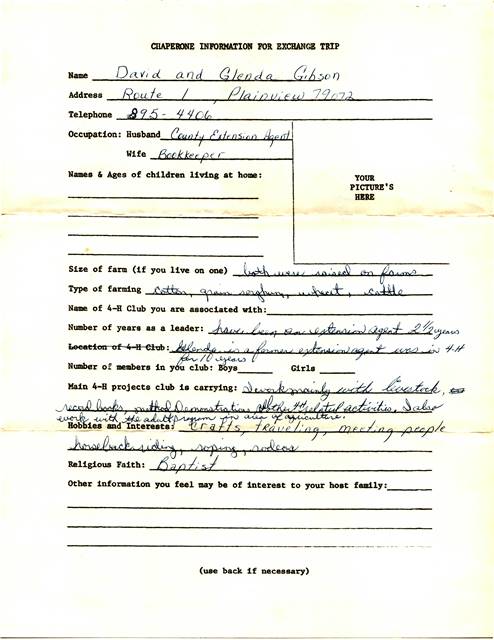 CHAPERONE INFORMATION FOR EXCHANGE TRIP
Name David and Glenda Gibson
Address Route 1, Plainview 79072
Telephone 895-4406
Occupation: Husband County Extension Agent
Wife Bookkeeper
Names & Ages of children living at home:
YOUR
PICTURE'S
HERE
Size of farm (if you live on one) both were raised on farms
Type of farming cotton, grain sorghum, wheat, cattle
Name of 4-H Club you are associated with:
Number of years as a leader: have been an extension agent 2 1/2 years
Location of 4-H Club: Glenda is a former extension agent was in 4-H
for 10 years
Number of members in you club: Boys Girls
Main 4-H projects club is carrying: I work mainly with livestock,
record books, method Demonstrations, & other 4-H related activities, I also
work with the adult program in area of agriculture.
Hobbies and Interests: Crafts, traveling, meeting people
horseback riding, roping, rodeos
Religious Faith: Baptist
Other information you feel may be of interest to your host family:
(use back if necessary)